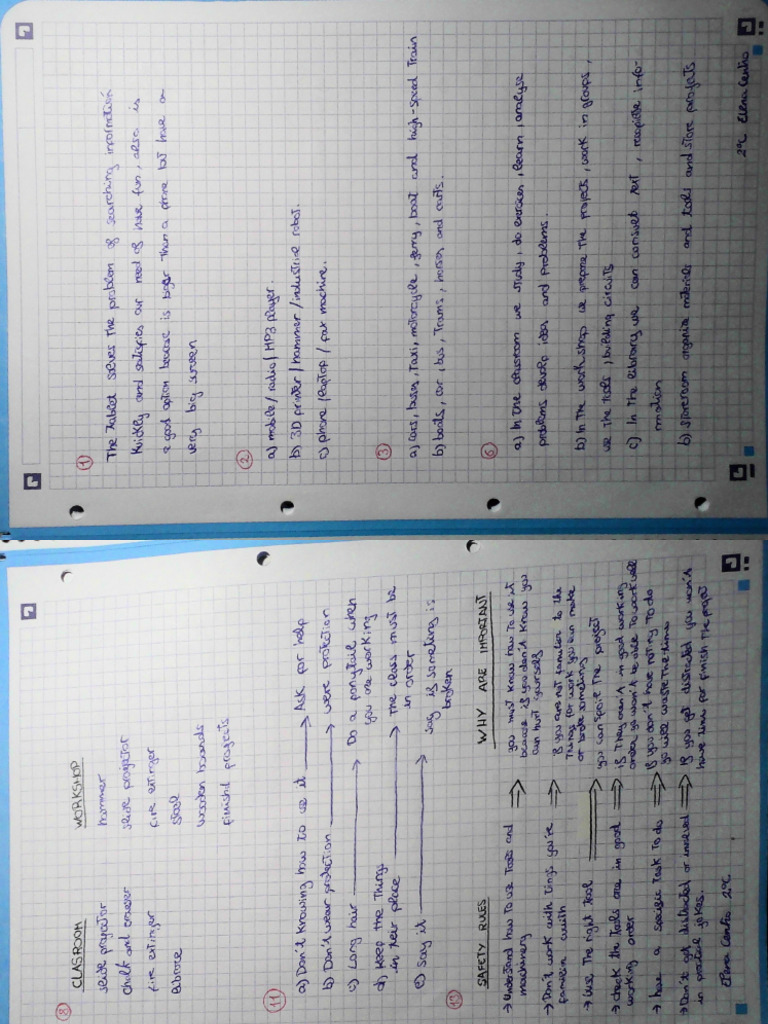 ①
The Tablet solves the problem of searching information
kuickly and satisfies our need of have fun, also is
a good option because is biger than a phone but have a
very big screen
②
a) mobile / radio / MP3 player
b) 3D printer / hammer / industrial robot.
c) phone / laptop / fax machine.
③
a) cars, buses, taxi, motorcycle, ferry, boat and high-speed train
b) boats, car, bus, trams, horses and carts.
⑥
a) In the classroom we study, do exercises, learn, analyse
problems develop ideas and problems.
b) In the workshop we prepare the projects, work in groups,
use the tools, building circuits
c) In the library we can consult, recopilate info-
mation
b) storeroom organize materials and tools and store projects
2ºC Elena Centro
⑧
CLASROOM
slide projector
chalk and eraser
fire extinger
WORKSHOP
hammer
slide projector
fire extinger
wooden boands
finished projects
⑪
a) Don't Knowing how to use it → Ask for help
b) Don't wear protection → were protection
c) Long hair → Do a ponytail when
you are working
d) Keep the Things
in their place → The class must be
in order
e) Say it → say if something is
broken
⑫
SAFETY RULES
WHY ARE IMPORTANT
→ Understand how to use Tools and
machinery ⇒ you must know how to use it
because if you don't know you
can hurt yourself
→ Don't work with tings you're
familiar with ⇒ If you are not familiar to the
things for work you can make
or broke something
→ Use The right Tool ⇒ you can spoil The project
→ check the tools are in good
working order ⇒ if They aren't in good working
order you won't be able to work well
→ have a specific task to do ⇒ If you don't have nothing to do
you will waste the time.
→ Don't get distracted or involved
in practical jokes. ⇒ If you get distracted you won't
have time for finish the project
Elena Centro 2ºC